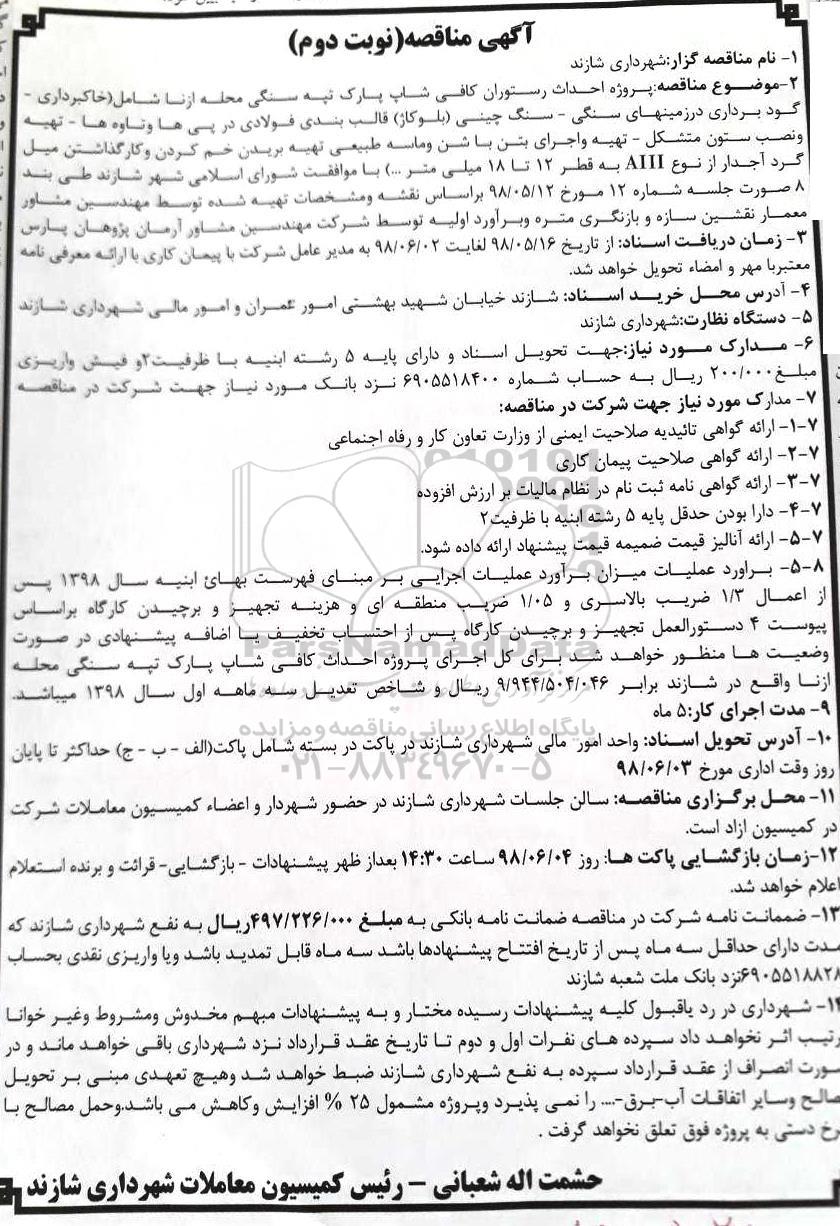 آگهی مناقصه(نوبت دوم)
۱- نام مناقصه گزار:شهرداری شازند
۲-موضوع مناقصه:پروژه احداث رستوران کافی شاپ پارک تپه سنگی محله ازنا شامل(خاکبرداری -
گود برداری درزمینهای سنگی - سنگ چینی (بلوکاژ) قالب بندی فولادی در پی ها وتاوه ها - تهیه
ونصب ستون متشکل - تهیه واجرای بتن با شن وماسه طبیعی تهیه بریدن خم کردن وکارگذاشتن میل
گرد آجدار از نوع AIII به قطر ۱۲ تا ۱۸ میلی متر ...) با موافقت شورای اسلامی شهر شازند طی بند
۸ صورت جلسه شماره ۱۲ مورخ ۹۸/۰۵/۱۲ براساس نقشه ومشخصات تهیه شده توسط مهندسین مشاور
معمار نقشین سازه و بازنگری متره وبرآورد اولیه توسط شرکت مهندسین مشاور آرمان پژوهان پارس
۳- زمان دریافت اسناد: از تاریخ ۹۸/۰۵/۱۶ لغایت ۹۸/۰۶/۰۲ به مدیر عامل شرکت با پیمان کاری با ارائه معرفی نامه
معتبربا مهر و امضاء تحویل خواهد شد.
۴- آدرس محل خرید اسناد: شازند خیابان شهید بهشتی امور عمران و امور مالی شهرداری شازند
۵- دستگاه نظارت:شهرداری شازند
۶- مدارک مورد نیاز:جهت تحویل اسناد و دارای پایه ۵ رشته ابنیه با ظرفیت۲و فیش واریزی
مبلغ۲۰۰/۰۰۰ ریال به حساب شماره ۶۹۰۵۵۱۸۴۰۰ نزد بانک مورد نیاز جهت شرکت در مناقصه
۷- مدارک مورد نیاز جهت شرکت در مناقصه:
۷-۱- ارائه گواهی تائیدیه صلاحیت ایمنی از وزارت تعاون کار و رفاه اجتماعی
۷-۲- ارائه گواهی صلاحیت پیمان کاری
۷-۳- ارائه گواهی نامه ثبت نام در نظام مالیات بر ارزش افزوده
۷-۴- دارا بودن حدقل پایه ۵ رشته ابنیه با ظرفیت۲
۷-۵- ارائه آنالیز قیمت ضمیمه قیمت پیشنهاد ارائه داده شود.
۸-۵- براورد عملیات میزان برآورد عملیات اجرایی بر مبنای فهرست بهائ ابنیه سال ۱۳۹۸ پس
از اعمال ۱/۳ ضریب بالاسری و ۱/۰۵ ضریب منطقه ای و هزینه تجهیز و برچیدن کارگاه براساس
پیوست ۴ دستورالعمل تجهیز و برچیدن کارگاه پس از احتساب تخفیف یا اضافه پیشنهادی در صورت
وضعیت ها منظور خواهد شد برای کل اجرای پروژه احداث کافی شاپ پارک تپه سنگی محله
ازنا واقع در شازند برابر ۹/۹۴۴/۵۰۴/۰۴۶ ریال و شاخص تعدیل سه ماهه اول سال ۱۳۹۸ میباشد.
۹- مدت اجرای کار:۵ ماه
۱۰- آدرس تحویل اسناد: واحد امور مالی شهرداری شازند در پاکت در بسته شامل پاکت(الف - ب - ج) حداکثر تا پایان
روز وقت اداری مورخ ۹۸/۰۶/۰۳
۱۱- محل برگزاری مناقصه: سالن جلسات شهرداری شازند در حضور شهردار و اعضاء کمیسیون معاملات شرکت
در کمیسیون ازاد است.
۱۲-زمان بازگشایی پاکت ها: روز ۹۸/۰۶/۰۴ ساعت ۱۴:۳۰ بعداز ظهر پیشنهادات - بازگشایی- قرائت و برنده استعلام
اعلام خواهد شد.
۱۳- ضممانت نامه شرکت در مناقصه ضمانت نامه بانکی به مبلغ ۴۹۷/۲۲۶/۰۰۰ریال به نفع شهرداری شازند که
مدت دارای حداقل سه ماه پس از تاریخ افتتاح پیشنهادها باشد سه ماه قابل تمدید باشد ویا واریزی نقدی بحساب
۶۹۰۵۵۱۸۸۲۸نزد بانک ملت شعبه شازند
۱۴- شهرداری در رد یاقبول کلیه پیشنهادات رسیده مختار و به پیشنهادات مبهم مخدوش ومشروط وغیر خوانا
رتیب اثر نخواهد داد سپرده های نفرات اول و دوم تا تاریخ عقد قرارداد نزد شهرداری باقی خواهد ماند و در
صورت انصراف از عقد قرارداد سپرده به نفع شهرداری شازند ضبط خواهد شد وهیچ تعهدی مبنی بر تحویل
صالح وسایر اتفاقات آب-برق-.... را نمی پذیرد وپروژه مشمول ۲۵ % افزایش وکاهش می باشد.وحمل مصالح با
رخ دستی به پروژه فوق تعلق نخواهد گرفت .
حشمت اله شعبانی - رئیس کمیسیون معاملات شهرداری شازند
ParsNamadData
پایگاه اطلاع رسانی مناقصه و مزایده
۰۲۱-۸۸۳۴۹۶۷۰-۵